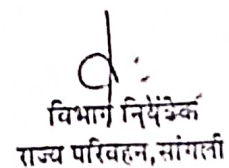 विभाग नियंत्रक
राज्य परिवहन, सांगली